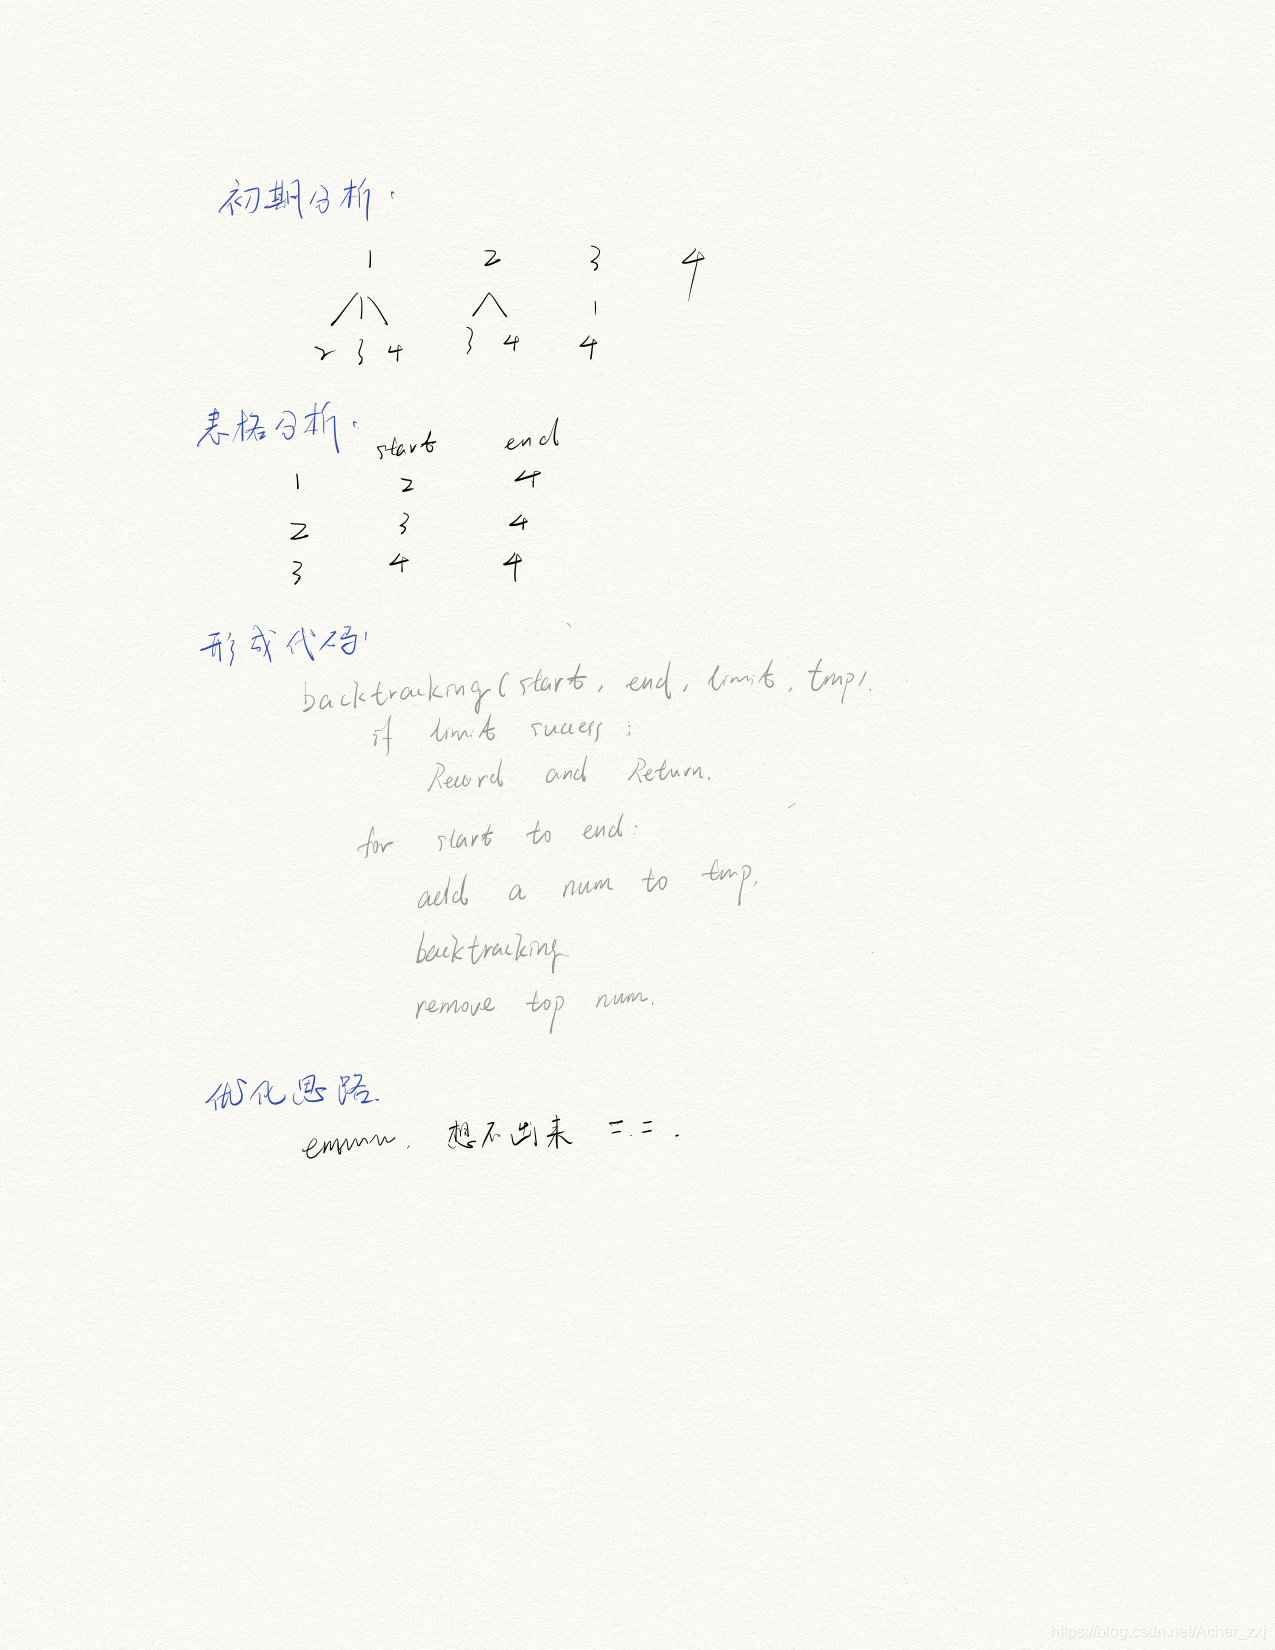 初期分析.
1 2 3 4
2 3 4 3 4 4
表格分析. start end
1 2 4
2 3 4
3 4 4
形成代码:
backtracking(start, end, limit, tmp):
if limit success:
Record and Return.
for start to end:
add a num to tmp.
backtracking
remove top num.
优化思路.
emmm. 想不出来 =.=.
https://blog.csdn.net/Acher_zxj